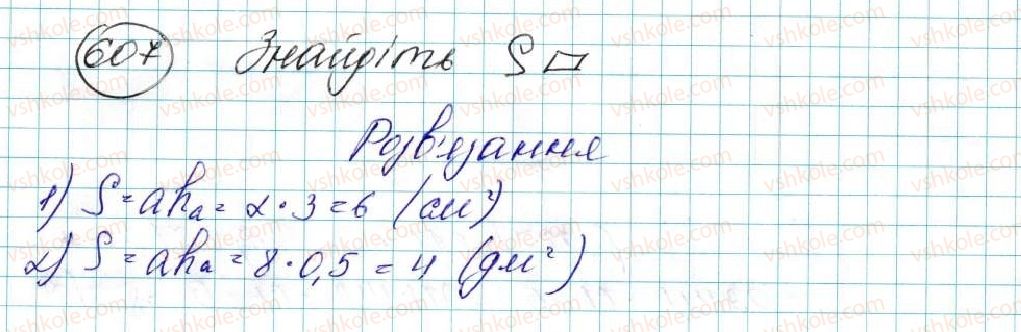 607 Знайдіть S▱
Розв'язання
1) S = ahₐ = 2 · 3 = 6 (см²)
2) S = ahₐ = 8 · 0,5 = 4 (дм²)